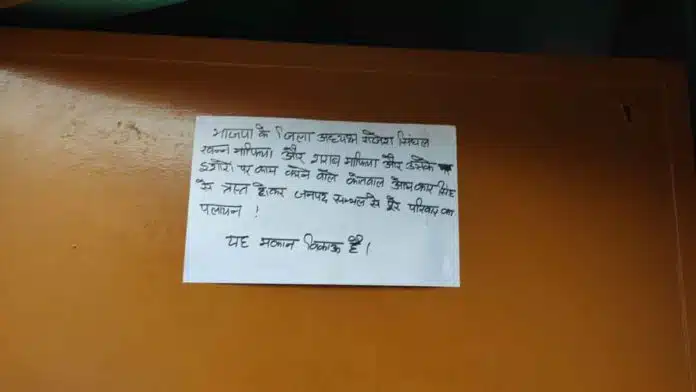 भाजपा के जिला अध्यक्ष राजेश सिंघल
खनन माफिया और शराब माफिया और उसके
इशारो पर काम करने वाले कोतवाल ओमकार सिंह
से त्रस्त होकर जनपद सम्भल से पूरे परिवार का
पलायन !
यह मकान बिकाऊ है।